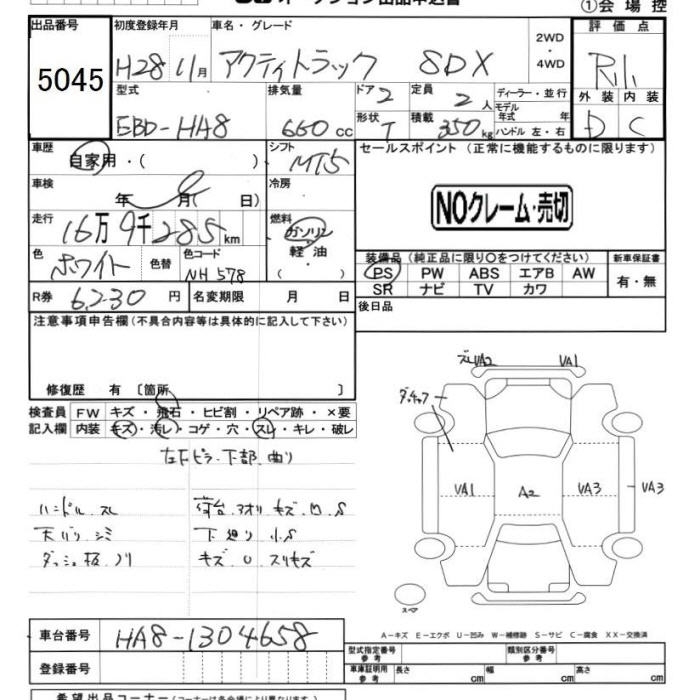 ①会場控
出品番号 初度登録年月 車名・グレード 評価点
5045 H28 11月 アクティトラック SDX 2WD・4WD
型式 排気量 ドア 2 定員 2人 ディーラー・並行 外装 内装
モデル年式 年
EBD-HA8 660cc 形状 T 積載 350kg ハンドル 左・右 D C
車歴 シフト セールスポイント (正常に機能するものに限ります)
自家用・( ) MT5
車検 冷房
年 月( 日) NOクレーム・売切
走行 燃料
16万9千285km ガソリン・軽油
装備品(純正品に限り○をつけてください) 新車保証書
色 ホワイト 色替 色コード NH578 ( )
PS PW ABS エアB AW 有・無
SR ナビ TV カワ
R券 6,230円 名変期限 月 日 後日品
注意事項申告欄(不具合内容等は具体的に記入して下さい)
修復歴 有 〔箇所 〕
検査員 FW キズ・飛石・ヒビ割・リペア跡・×要
記入欄 内装 キズ・汚レ・コゲ・穴・スレ・キレ・破レ
左Fピラ下部曲り
ハンドル スレ 荷台アオリ キズ 凹 S
天バリ シミ 下廻り 小S
ダッシュ板 ノリ キズ U スリキズ
VA2 VA1
VA1 A2 VA3 VA3
スペア
A-キズ E-エクボ U-凹み W-補修跡 S-サビ C-腐食 XX-交換済
車台番号 HA8-1304658
型式指定番号 参考 類別区分番号 参考
登録番号 車庫証明用 参考 長さ cm 幅 cm 高さ cm
希望出品コーナー(コーナーは各会場により異なります)